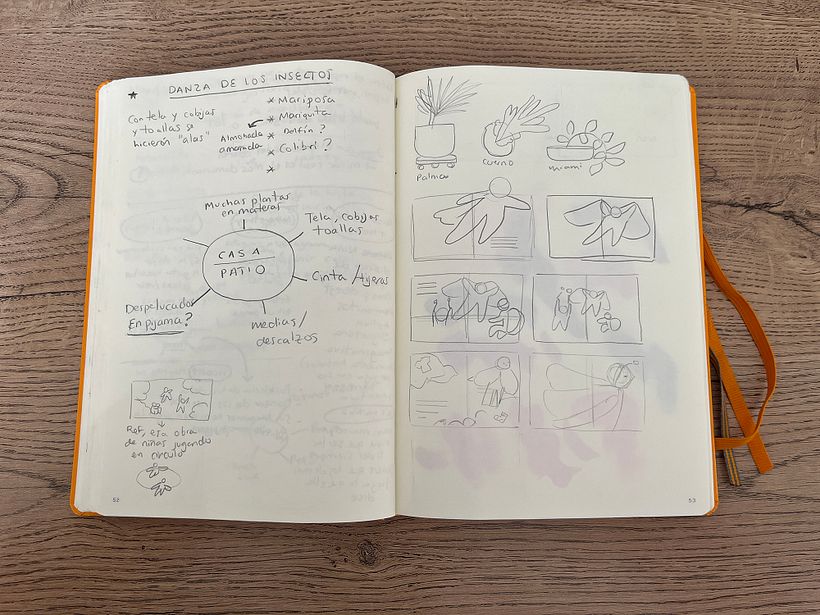 DANZA DE LOS INSECTOS
★ Con tela y cobijas
y toallas se
hicieron "alas"
* Mariposa
* Mariquita
Almohada
amarrada
* Delfín ?
* Colibrí ?
*
Muchas plantas
en matera
Tela, cobijas
toallas
CASA
PATIO
Cinta / tijeras
Despelucados
En pijama?
medias/
descalzos
Ref, esa obra
de niñas jugando
en círculo
52
Palma
cuerno
miami
53